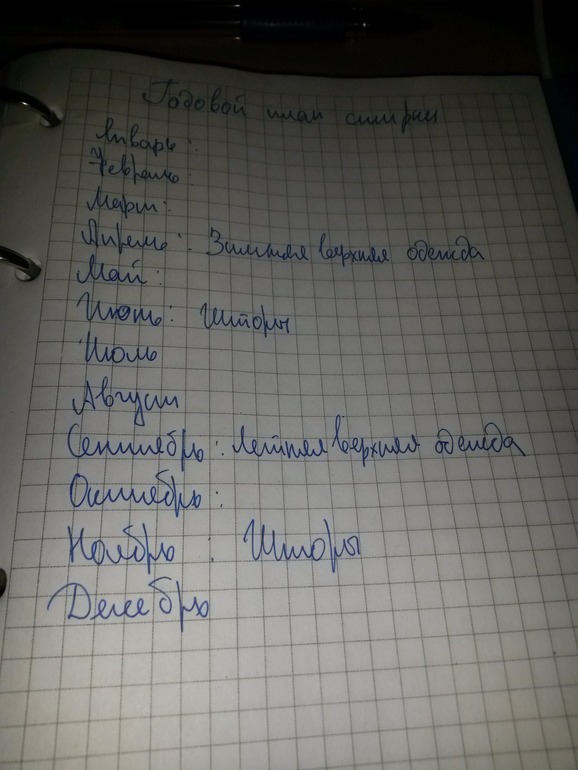 Годовой план стирки
Январь:
Февраль
Март:
Апрель: Зимняя верхняя одежда
Май:
Июнь: Шторы
Июль
Август
Сентябрь: Летняя верхняя одежда
Октябрь:
Ноябрь : Шторы
Декабрь